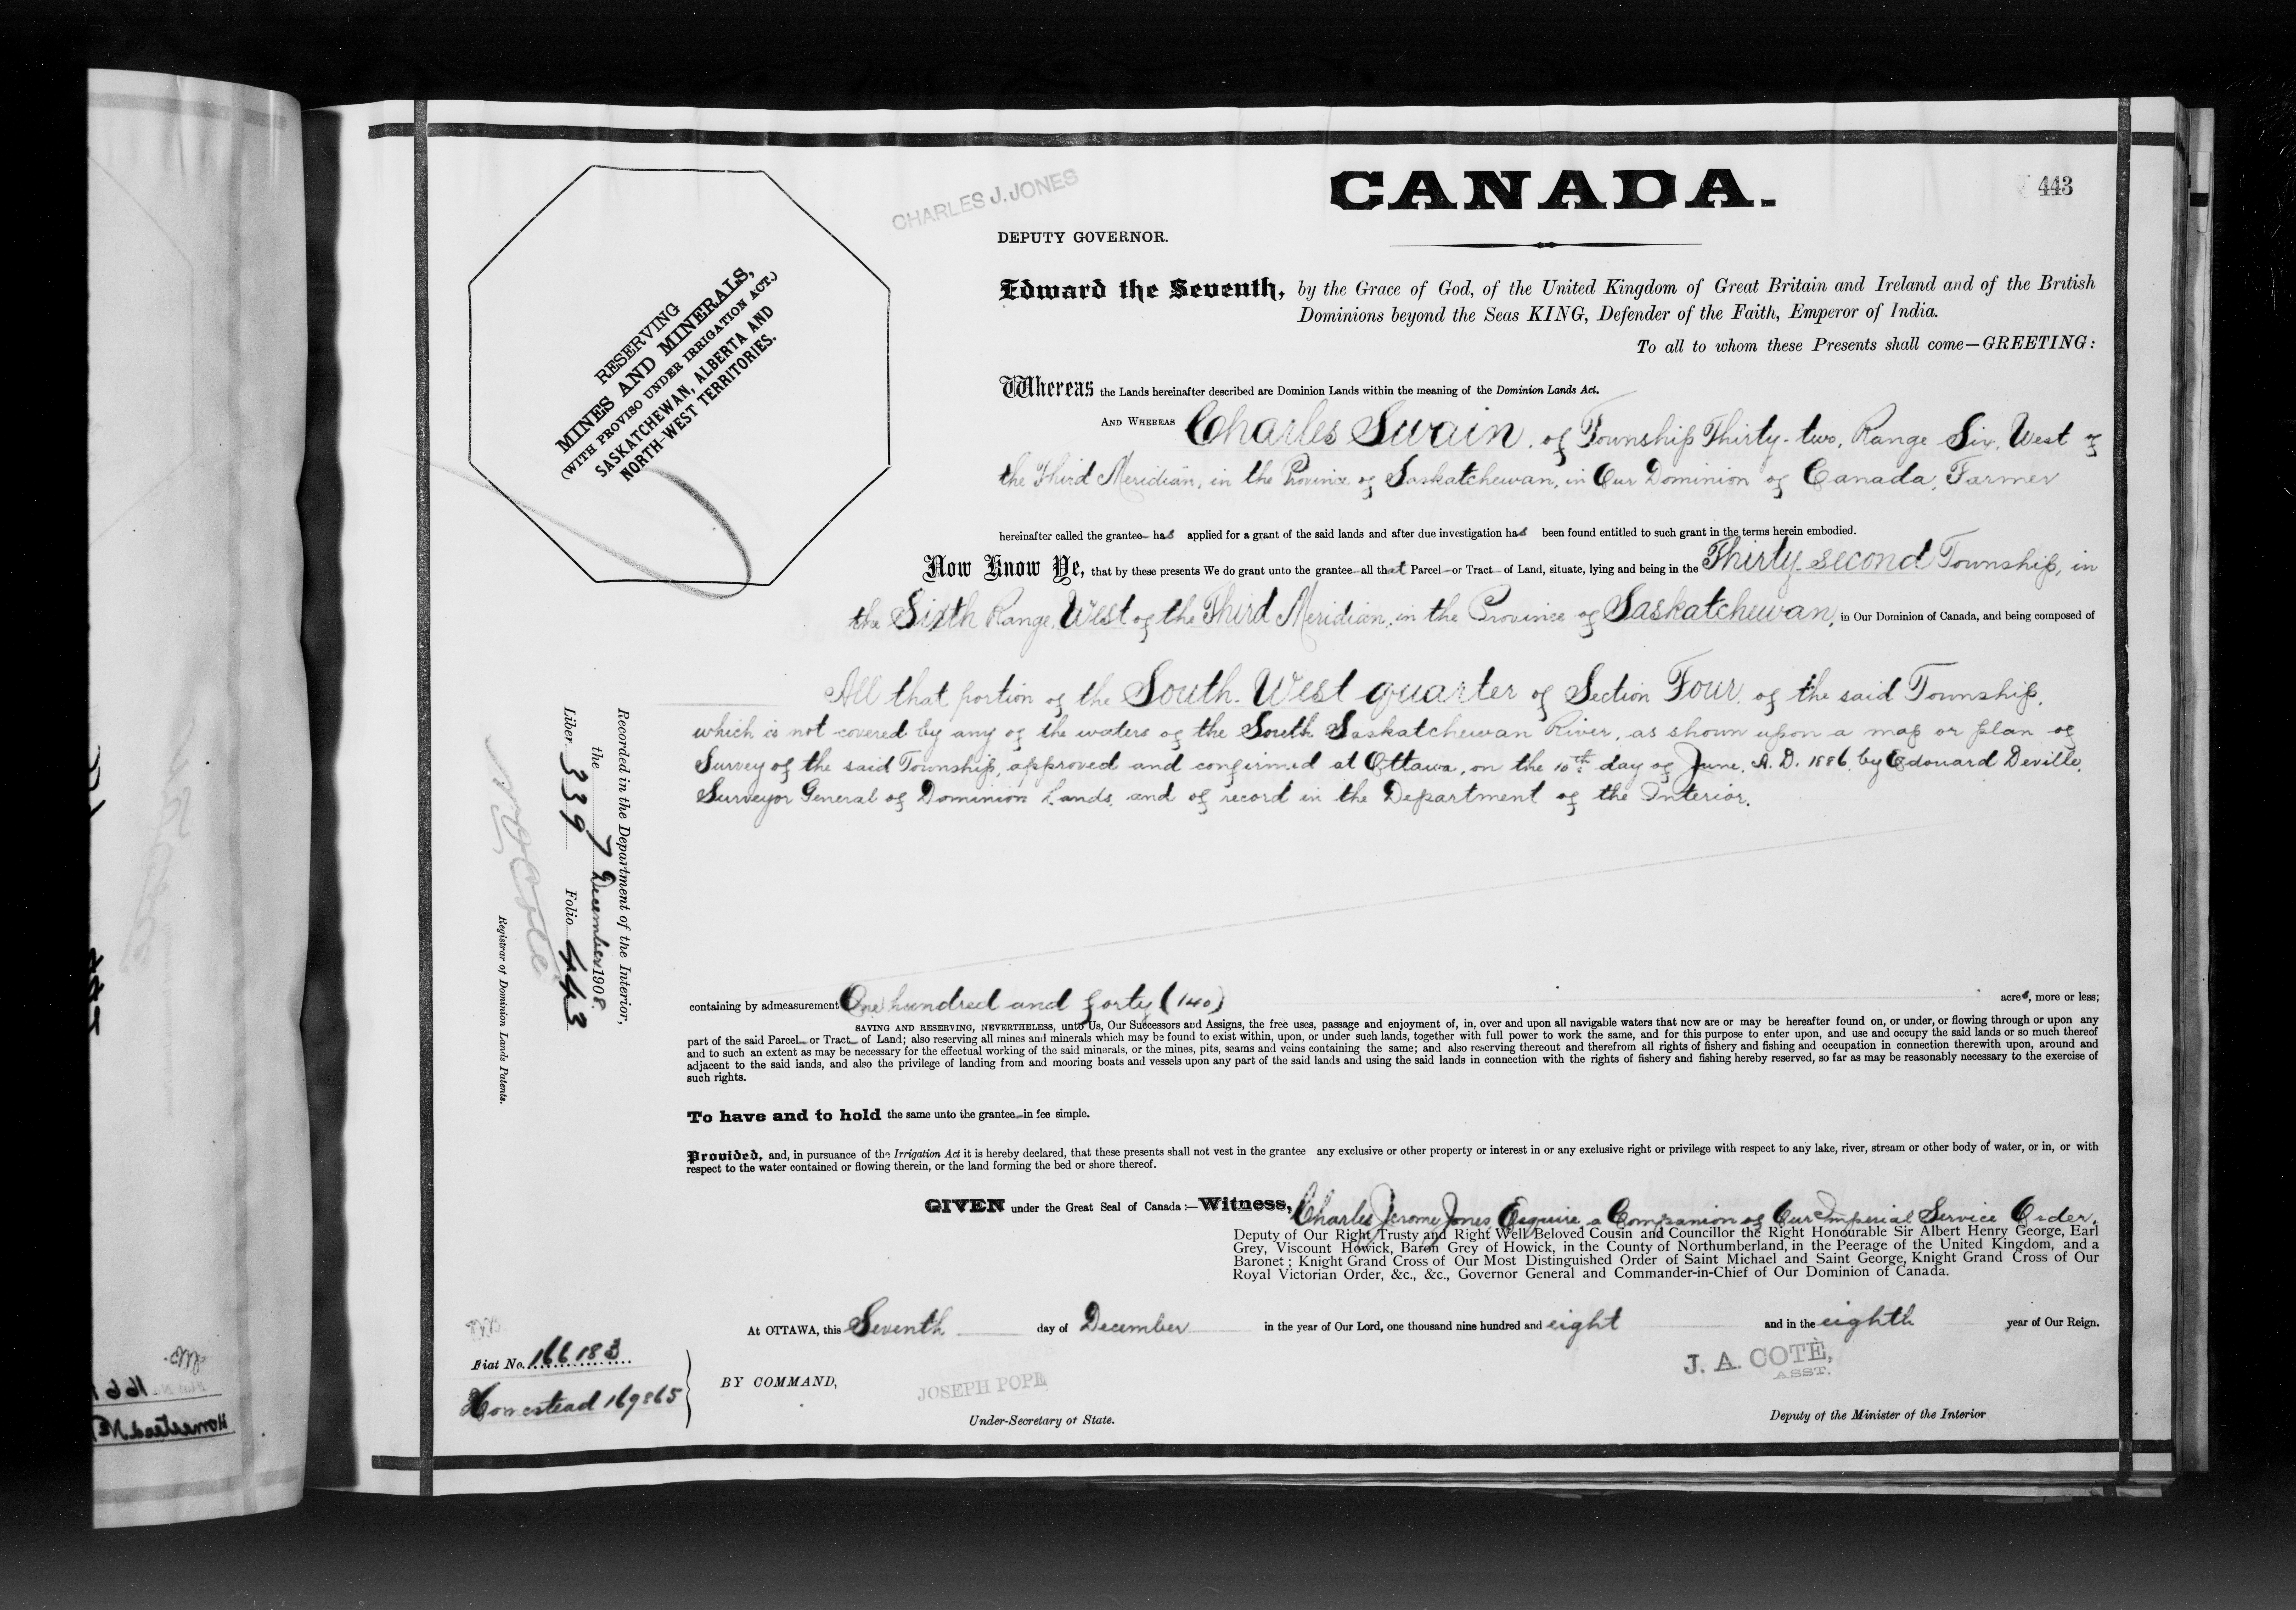 CHARLES J. JONES
CANADA.
443
DEPUTY GOVERNOR.
RESERVING
MINES AND MINERALS,
(WITH PROVISO UNDER IRRIGATION ACT.)
SASKATCHEWAN, ALBERTA AND
NORTH-WEST TERRITORIES.
Edward the Seventh, by the Grace of God, of the United Kingdom of Great Britain and Ireland and of the British
Dominions beyond the Seas KING, Defender of the Faith, Emperor of India.
To all to whom these Presents shall come—GREETING:
Whereas the Lands hereinafter described are Dominion Lands within the meaning of the Dominion Lands Act.
AND WHEREAS Charles Swain, of Township Thirty-two, Range Six, West of
the Third Meridian, in the Province of Saskatchewan, in Our Dominion of Canada, Farmer
hereinafter called the grantee has applied for a grant of the said lands and after due investigation has been found entitled to such grant in the terms herein embodied.
Now Know Ye, that by these presents We do grant unto the grantee all that Parcel or Tract of Land, situate, lying and being in the Thirty-second Township, in
the Sixth Range, West of the Third Meridian, in the Province of Saskatchewan, in Our Dominion of Canada, and being composed of
All that portion of the South-West quarter of Section Four, of the said Township,
which is not covered by any of the waters of the South Saskatchewan River, as shown upon a map or plan of
Survey of the said Township, approved and confirmed at Ottawa, on the 10th day of June, A.D. 1886, by Edouard Deville,
Surveyor General of Dominion Lands, and of record in the Department of the Interior.
Recorded in the Department of the Interior,
the 7 December 1908.
Liber 339 Folio 443
Registrar of Dominion Lands Patents.
containing by admeasurement One hundred and forty (140) acres, more or less;
SAVING AND RESERVING, NEVERTHELESS, unto Us, Our Successors and Assigns, the free uses, passage and enjoyment of, in, over and upon all navigable waters that now are or may be hereafter found on, or under, or flowing through or upon any
part of the said Parcel or Tract of Land; also reserving all mines and minerals which may be found to exist within, upon, or under such lands, together with full power to work the same, and for this purpose to enter upon, and use and occupy the said lands or so much thereof
and to such an extent as may be necessary for the effectual working of the said minerals, or the mines, pits, seams and veins containing the same; and also reserving thereout and therefrom all rights of fishery and fishing and occupation in connection therewith upon, around and
adjacent to the said lands, and also the privilege of landing from and mooring boats and vessels upon any part of the said lands and using the said lands in connection with the rights of fishery and fishing hereby reserved, so far as may be reasonably necessary to the exercise of
such rights.
To have and to hold the same unto the grantee in fee simple.
Provided, and, in pursuance of the Irrigation Act it is hereby declared, that these presents shall not vest in the grantee any exclusive or other property or interest in or any exclusive right or privilege with respect to any lake, river, stream or other body of water, or in, or with
respect to the water contained or flowing therein, or the land forming the bed or shore thereof.
GIVEN under the Great Seal of Canada:—Witness, Charles Jerome Jones, Esquire, a Companion of Our Imperial Service Order,
Deputy of Our Right Trusty and Right Well Beloved Cousin and Councillor the Right Honourable Sir Albert Henry George, Earl
Grey, Viscount Howick, Baron Grey of Howick, in the County of Northumberland, in the Peerage of the United Kingdom, and a
Baronet; Knight Grand Cross of Our Most Distinguished Order of Saint Michael and Saint George, Knight Grand Cross of Our
Royal Victorian Order, &c., &c., Governor General and Commander-in-Chief of Our Dominion of Canada.
At OTTAWA, this Seventh day of December in the year of Our Lord, one thousand nine hundred and eight and in the eighth year of Our Reign.
Fiat No. 166183
Homestead 169865
BY COMMAND,
JOSEPH POPE
Under-Secretary of State.
J. A. COTÈ,
ASST.
Deputy of the Minister of the Interior